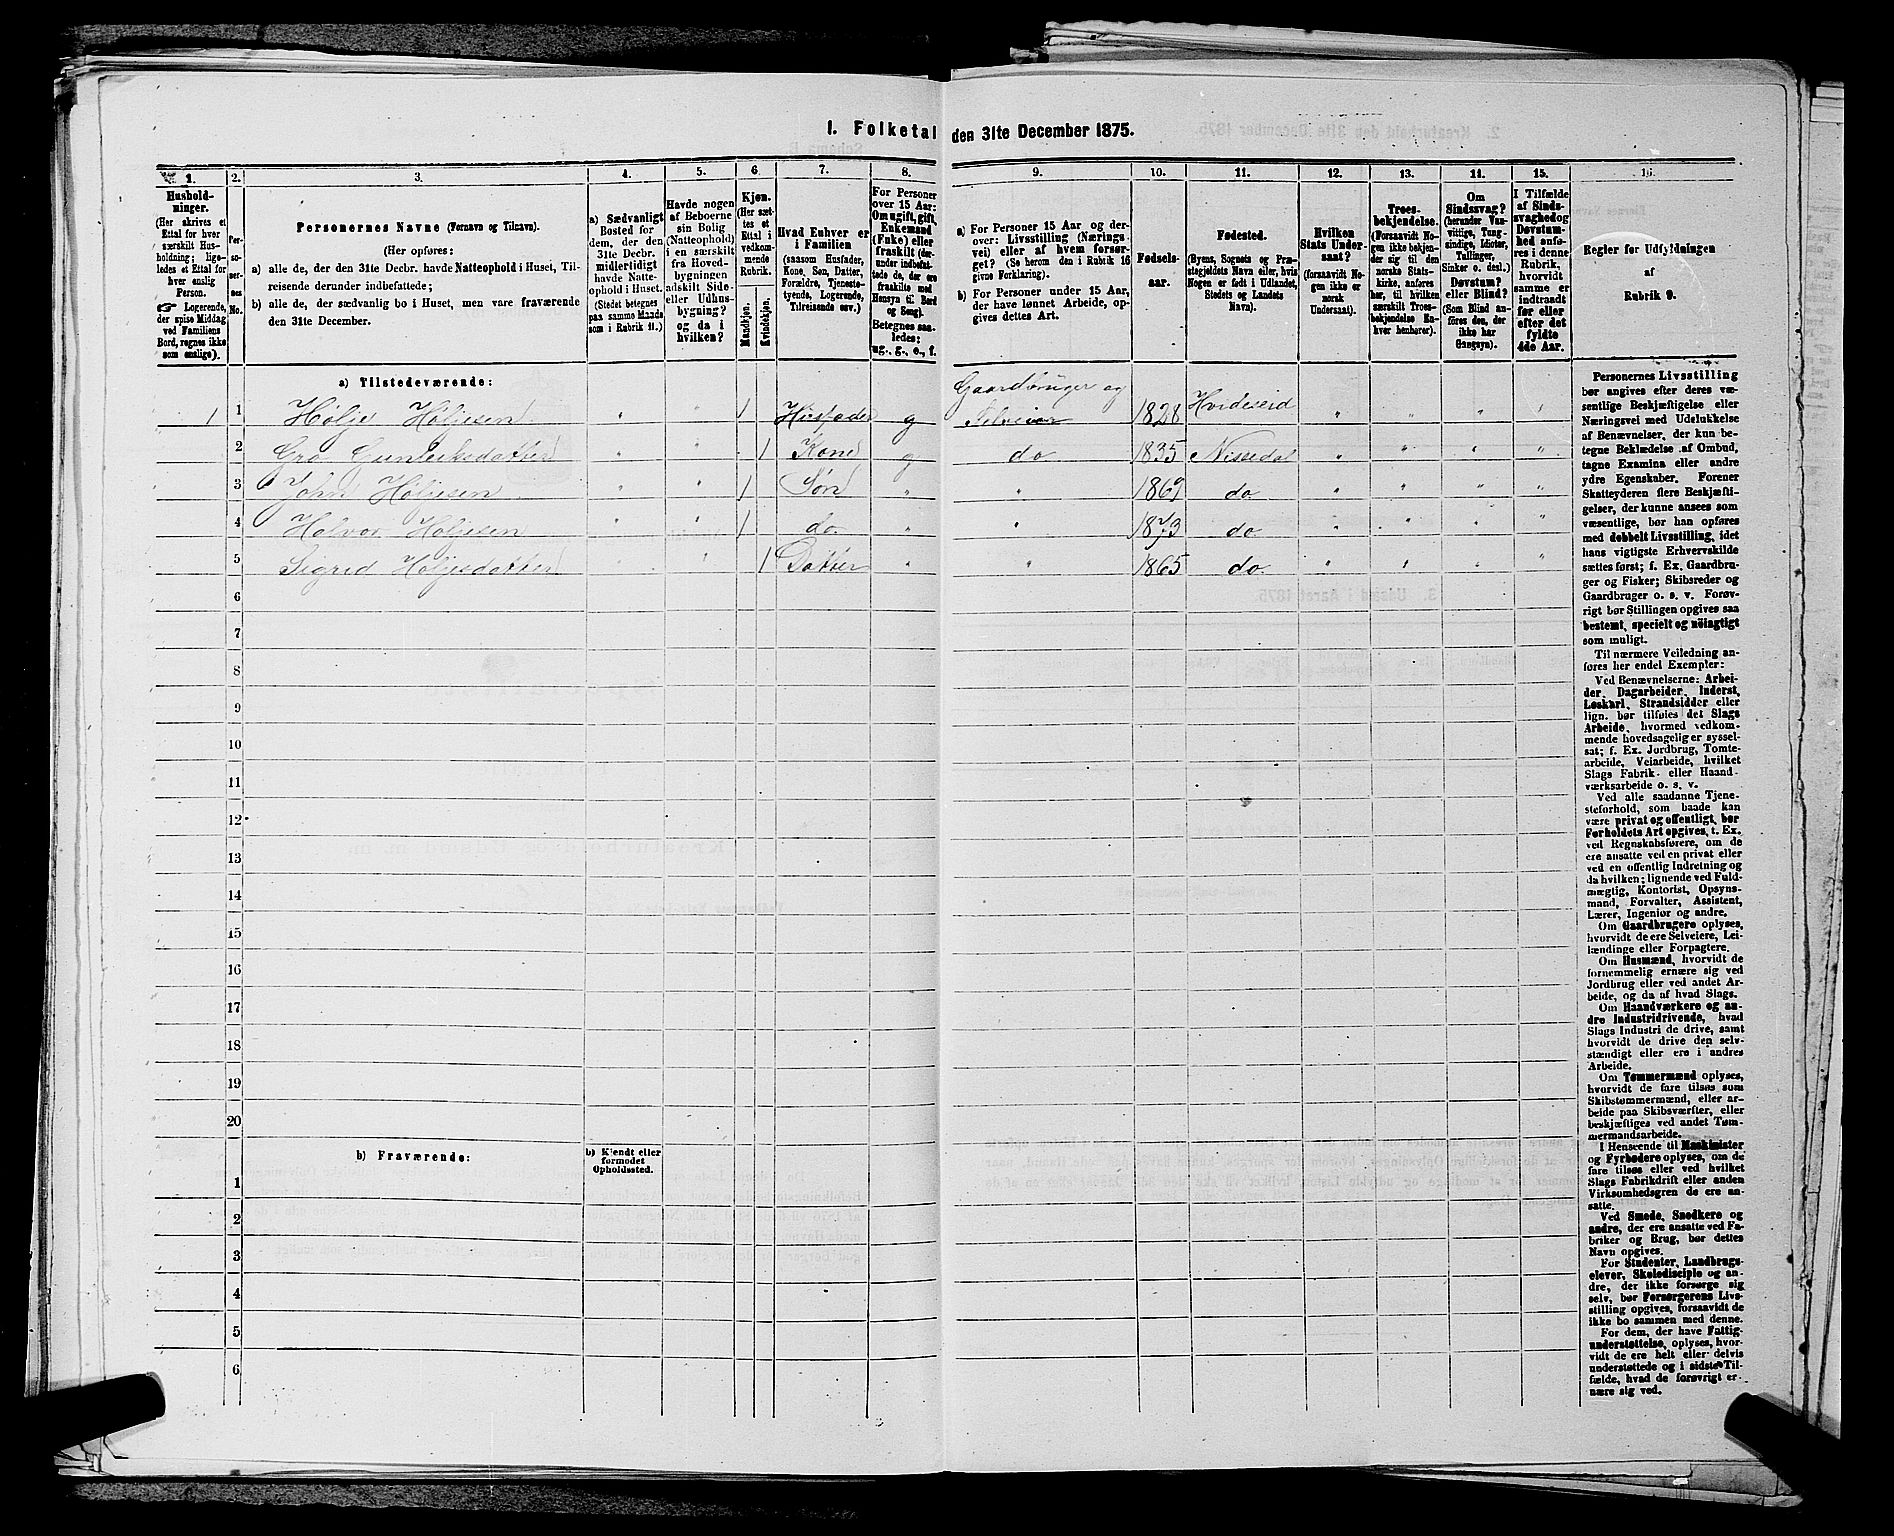 1. Folketal den 31te December 1875.
1. 2. 3. 4. 5. 6. 7. 8. 9. 10. 11. 12. 13. 14. 15. 16.
Hushold-
ninger.
(Her skrives et
Ettal for hver
særskilt Hus-
holdning; lige-
ledes et Ettal for
hver enslig
Person.
☞ Logerende,
der spise Middag
ved Familiens
Bord, regnes ikke
som enslige).
Per-
so-
ner-
nes
No.
Personernes Navne (Fornavn og Tilnavn).
(Her opføres:
a) alle de, der den 31te Decbr. havde Natteophold i Huset, Til-
reisende derunder indbefattede;
b) alle de, der sædvanlig bo i Huset, men vare fraværende
den 31te December.
a) Sædvanligt
Bosted for
dem, der den
31te Decbr.
midlertidigt
havde Natte-
ophold i Huset.
(Stedet betegnes
paa samme Maade
som i Rubrik 11.)
Havde nogen
af Beboerne
sin Bolig
(Natteophold)
i en særskilt
fra Hoved-
bygningen
adskilt Side-
eller Udhus-
bygning?
og da i
hvilken?
Kjøn.
(Her sæt-
tes et
Ettal i
vedkom-
mende
Rubrik.
Mandkjøn.
Kvindekjøn.
Hvad Enhver er
i Familien
(saasom Husfader,
Kone, Søn, Datter,
Forældre, Tjeneste-
tyende, Logerende,
Tilreisende osv.)
For Personer
over 15 Aar:
Om ugift, gift,
Enkemand
(Enke) eller
fraskilt (der-
under indbefat-
tede de, der ere
fraskilte med
Hensyn til Bord
og Seng).
Betegnes saa-
ledes:
ug., g., e., f.
a) For Personer 15 Aar og der-
over: Livsstilling (Nærings-
vei) eller af hvem forsør-
get? (Se herom den i Rubrik 16
givne Forklaring).
b) For Personer under 15 Aar,
der have lønnet Arbeide, op-
gives dettes Art.
Fødsels-
aar.
Fødested.
(Byens, Sognets og Præ-
stegjeldets Navn eller, hvis
Nogen er født i Udlandet,
Stedets og Landets
Navn).
Hvilken
Stats Under-
saat?
(forsaavidt No-
gen ikke er
norsk
Undersaat).
Troes-
bekjendelse.
(Forsaavidt No-
gen ikke bekjen-
der sig til den
norske Stats-
kirke, anføres
her, til hvilken
særskilt Troes-
bekjendelse En-
hver henhører).
Om
Sindssvag?
(herunder Van-
vittige, Tung-
sindige, Idioter,
Tullinger,
Sinker o. desl.)
Døvstum?
eller Blind?
(Som Blind an-
føres den, der
ikke har
Gangsyn).
I Tilfælde
af Sinds-
svaghed og
Døvstum-
hed anfø-
res i denne
Rubrik,
hvorvidt
samme er
indtraadt
før eller
efter det
fyldte
4de Aar.
Regler for Udfyldningen
af
Rubrik 9.
a) Tilstedeværende:
Gaardbruger og
1 1 Hølje Høljesen " " 1 Husfader g Selveier 1828 Hvideseid " " " "
2 Gro Gunleiksdatter " " 1 Kone g do 1835 Nissedal " " " "
3 John Høljesen " " 1 Søn " " 1869 do. " " " "
4 Halvor Høljesen " " 1 do. " " 1873 do " " " "
5 Sigrid Høljesdatter " " 1 Datter " " 1865 do. " " " "
6
7
8
9
10
11
12
13
14
15
16
17
18
19
20
b) Fraværende:
b) Kjendt eller
formodet
Opholdssted.
1
2
3
4
5
6
Personernes Livsstilling
bør angives efter deres væ-
sentlige Beskjæftigelse eller
Næringsvei med Udelukkelse
af Benævnelser, der kun be-
tegne Beklædelse af Ombud,
tagne Examina eller andre
ydre Egenskaber. Forener
Skatteyderen flere Beskjæfti-
gelser, der kunne ansees som
væsentlige, bør han opføres
med dobbelt Livsstilling, idet
hans vigtigste Erhvervskilde
sættes først; f. Ex. Gaardbru-
ger og Fisker; Skibsreder og
Gaardbruger o. s. v. Forøv-
rigt bør Stillingen opgives saa
bestemt, specielt og nøiagtigt
som muligt.
Til nærmere Veiledning an-
føres her endel Exempler:
Ved Benævnelserne: Arbei-
der, Dagarbeider, Inderst,
Løskarl, Strandsidder eller
lign. bør tilføies det Slags
Arbeide, hvormed vedkom-
mende hovedsagelig er syssel-
sat; f. Ex. Jordbrug, Tomte-
arbeide, Veiarbeide, hvilket
Slags Fabrik- eller Haand-
værksarbeide o. s. v.
Ved alle saadanne Tjene-
steforhold, som baade kan
være privat og offentligt, bør
Forholdets Art opgives, t. Ex.
ved Regnskabsførere, om de
ere ansatte ved en privat eller
ved en offentlig Indretning og
da hvilken; lignende ved Fuld-
mægtig, Kontorist, Opsyns-
mand, Forvalter, Assistent,
Lærer, Ingeniør og andre.
Om Gaardbrugere oplyses,
hvorvidt de ere Selveiere, Lei-
lændinge eller Forpagtere.
Om Husmænd, hvorvidt de
fornemmelig ernære sig ved
Jordbrug eller ved andet Ar-
beide, og da af hvad Slags.
Om Haandværkere og an-
dre Industridrivende, hvad
Slags Industri de drive, samt
hvorvidt de drive den selv-
stændigt eller ere i andres
Arbeide.
Om Tømmermænd oplyses,
hvorvidt de fare tilsøs som
Skibstømmermænd, eller ar-
beide paa Skibsværfter, eller
beskjæftiges ved andet Tøm-
mermandsarbeide.
I Henseende til Maskinister
og Fyrbødere oplyses, om de
fare tilsøs eller ved hvilket
Slags Fabrikdrift eller anden
Virksomhedsgren de ere an-
satte.
Ved Smede, Snedkere og
andre, der ere ansatte ved Fa-
briker og Brug, bør dettes
Navn opgives.
For Studenter, Landbrugs-
elever, Skoledisciple og an-
dre, der ikke forsørge sig
selv, bør Forsørgerens Livs-
stilling opgives, forsaavidt de
ikke bo sammen med denne.
For dem, der have Fattig-
understøttelse, oplyses, hvor-
vidt de ere helt eller delvis
understøttede og i sidste Til-
fælde, hvad de forøvrigt er-
nære sig ved.